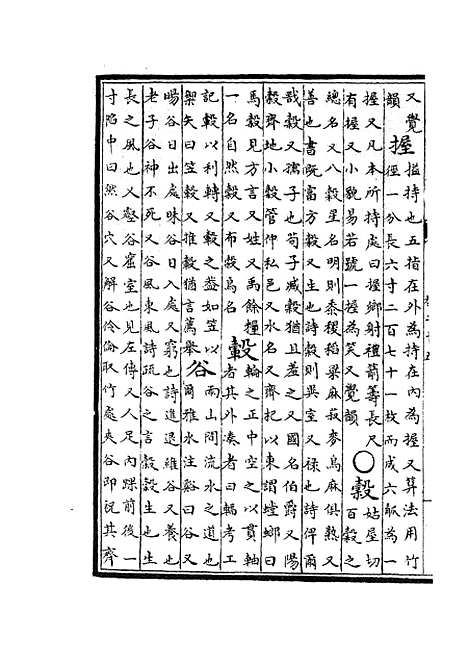 又覺韻握搤持也五指在外為持在內為握又算法用竹徑一分長六寸二百七十一枚而成六觚為一
握又凡本所持處曰握鄉射禮箭籌長尺有握又小貌易若號一握為笑又覺韻○穀姑屋切百穀之
總名又八穀星名明則黍稷稻粱麻菽麥烏麻俱熟又善也書既富方穀又生也詩穀則異室又祿也詩俾爾
戩穀又孺子也荀子臧穀猶且羞之又國名伯爵又陽穀齊地小穀管仲私邑又水名又齊把以東謂螳螂曰
馬穀見方言又姓又禹餘糧一名自然穀又布穀鳥名轂輪之正中空之以貫軸者其外湊者曰輻考工
記轂以利轉又轂之盎如笠以禦矢曰笠轂又推轂猶薦舉谷兩山間流水之道也爾雅水注谿曰谷又
暘谷日出處昧谷日入處又窮也詩進退維谷又養也老子谷神不死又谷風東風詩疏谷之言穀穀生也生
長之風也又壑谷窟室也見左傳又人足內踝前後一寸陷中曰然谷穴又解谷伶倫取竹處夾谷即祝其齊